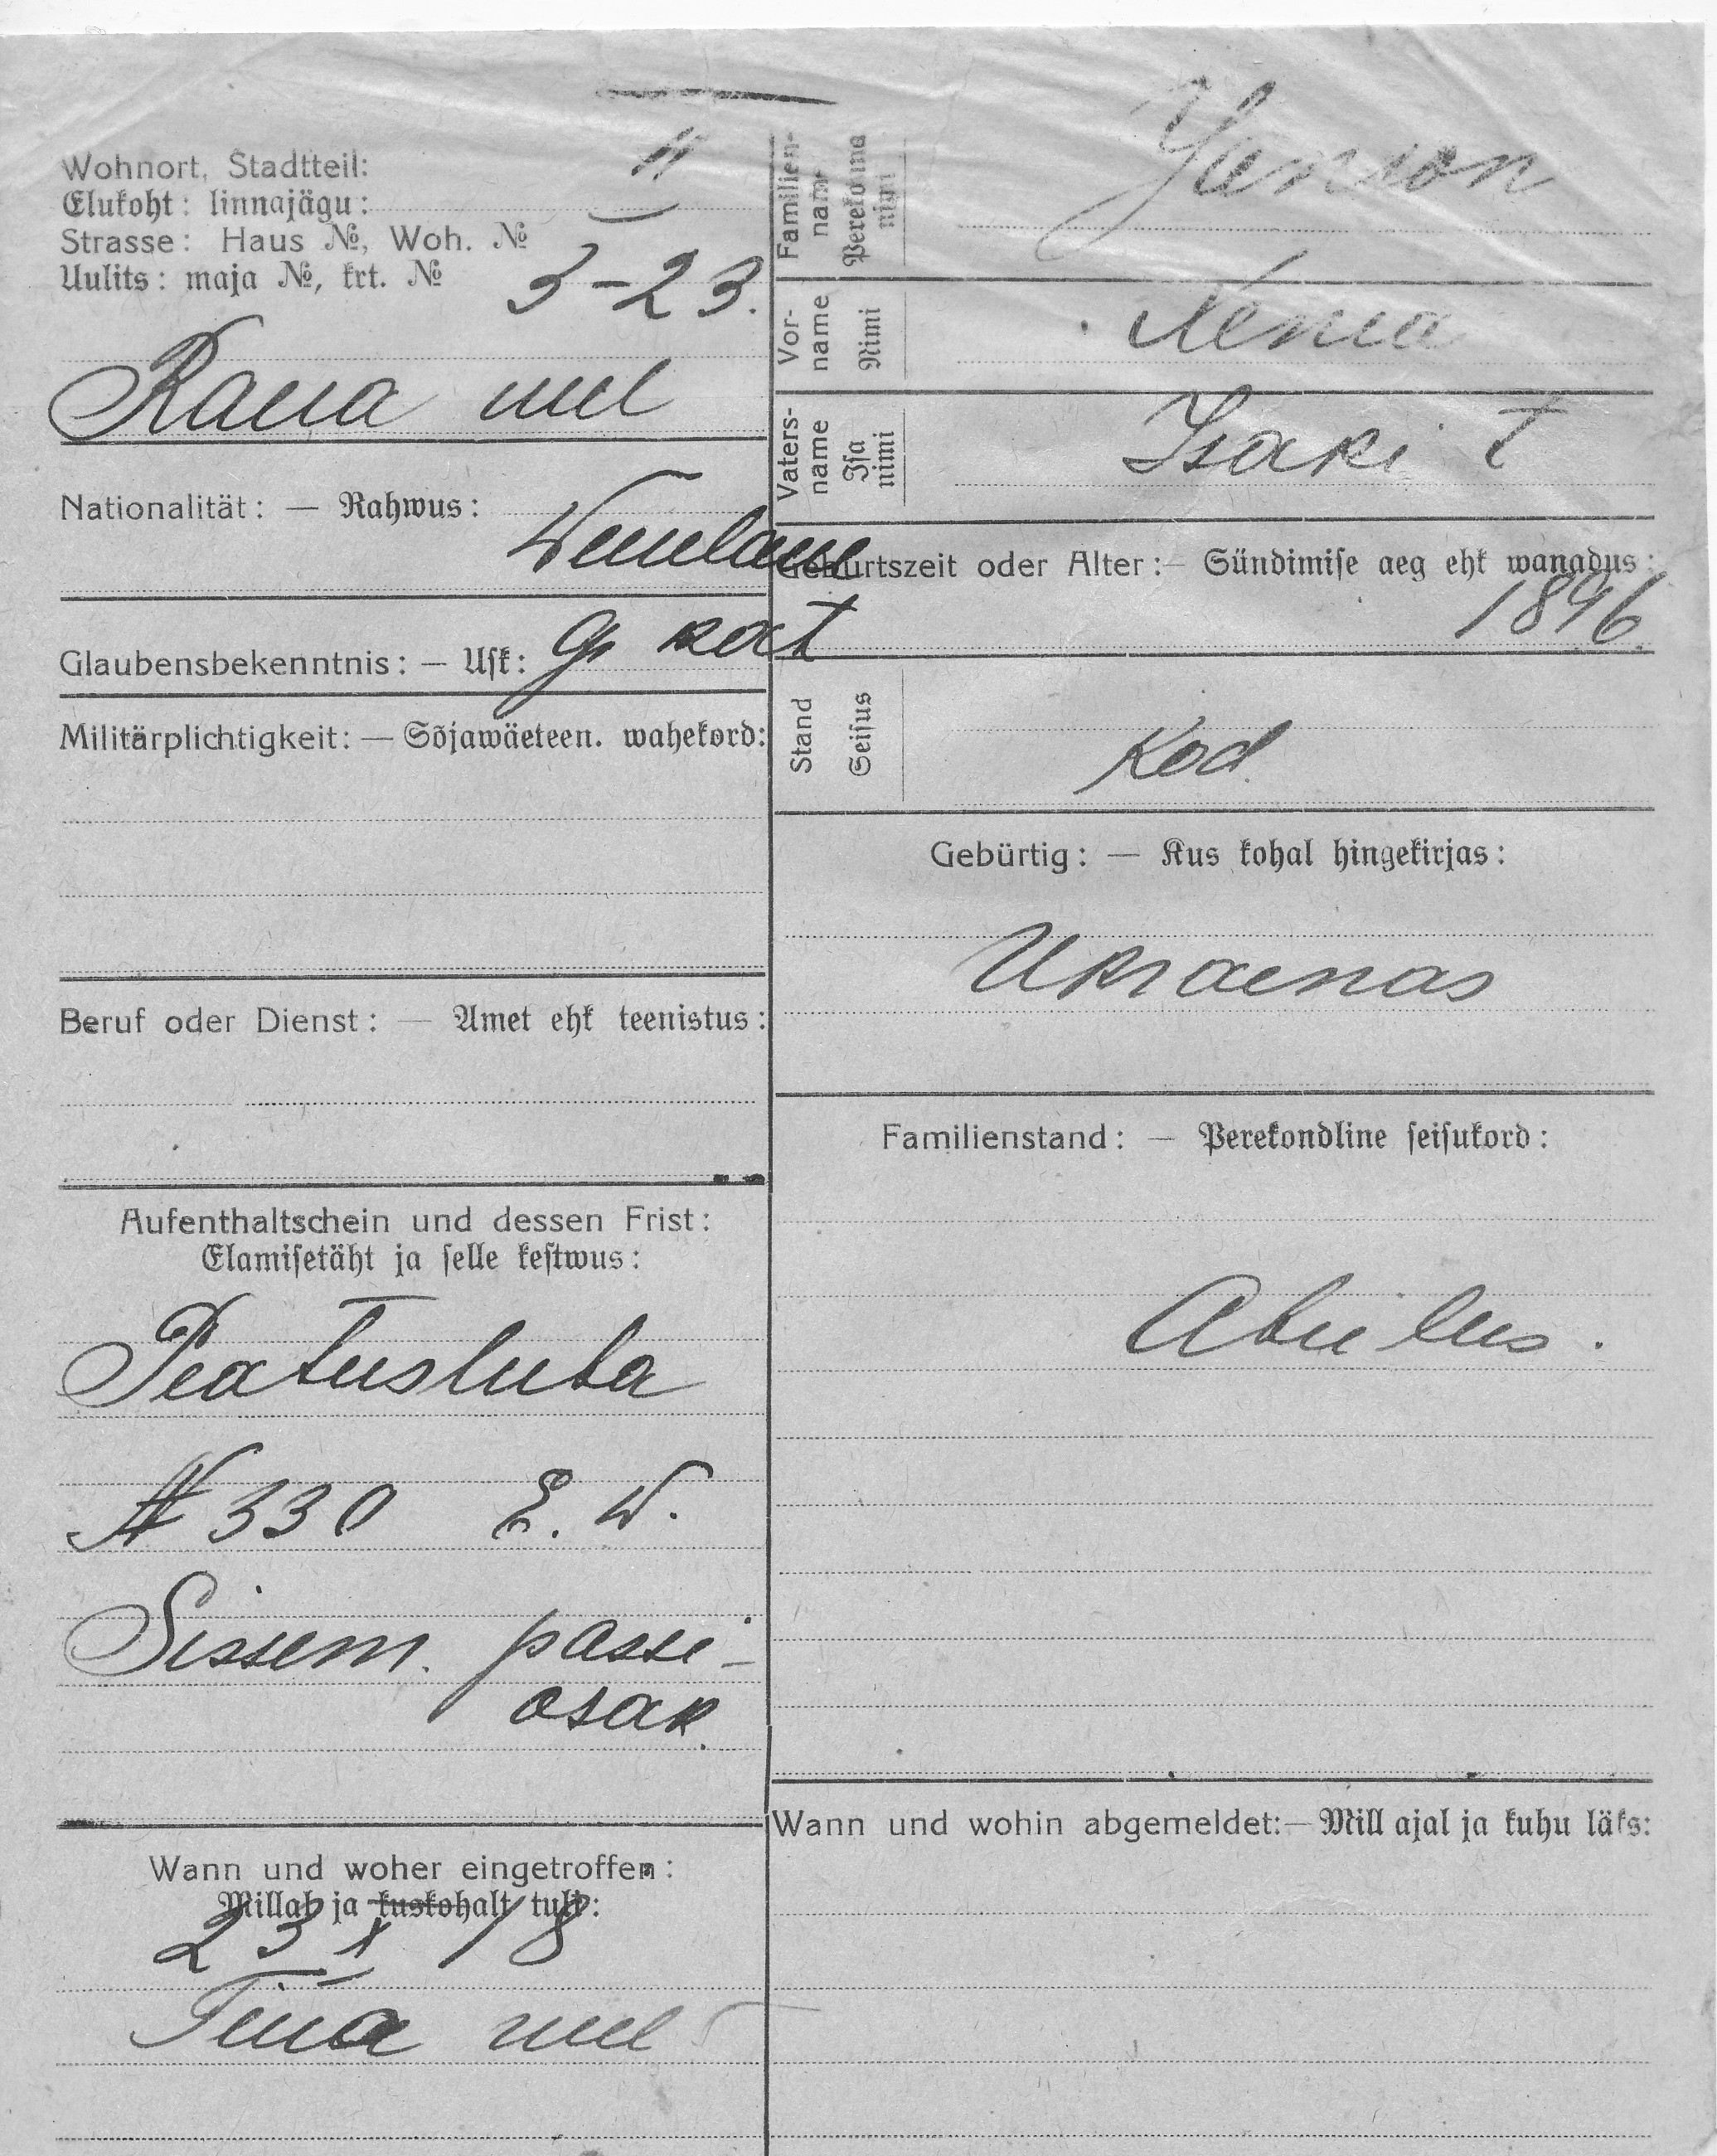 Wohnort, Stadtteil:
Elukoht: linnajägu: II
Strasse: Haus №, Woh. №
Uulits: maja №, krt. № 3-23.
Raua uul
Nationalität: — Rahwus: Wenelane
Glaubensbekenntnis: — Usk: gr kat
Militärplichtigkeit: — Sõjawäeteen. wahekord:
Beruf oder Dienst: — Amet ehk teenistus:
Aufenthaltschein und dessen Frist:
Elamisetäht ja selle kestwus:
Peatusluba
N 330 E. W.
Sissem. passi-
osak.
Wann und woher eingetroffen:
Millal ja kuskohalt tuli:
23 X 18
Tina uul
Familien-
name
Perekonna
nimi
Janson
Vor-
name
Nimi
Xenia
Vaters-
name
Isa
nimi
Isaki t
Geburtszeit oder Alter: — Sündimise aeg ehk wanadus:
1896.
Stand
Seisus
Kod.
Gebürtig: — Kus kohal hingekirjas:
Ukraenas
Familienstand: — Perekondline seisukord:
Abielus.
Wann und wohin abgemeldet: — Mill ajal ja kuhu läks: